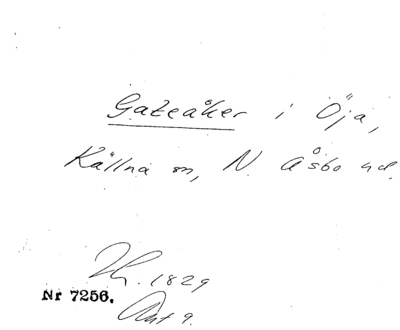 Gateåker i Öja,
Källna sn, N. Åsbo hd.
Lh. 1829
Nr 7256.
Akt 9.